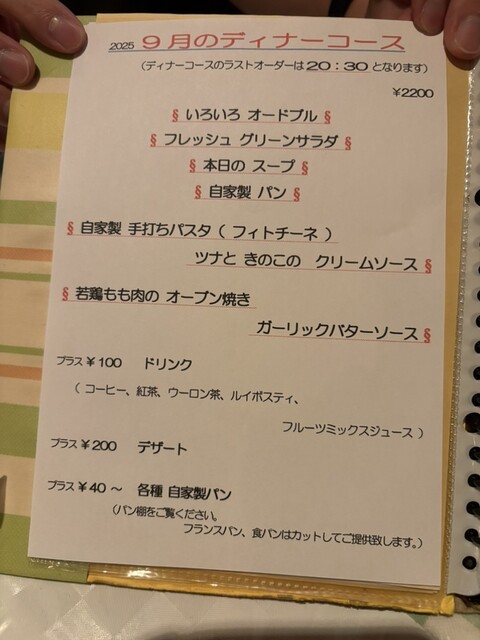 2025 9月のディナーコース
（ディナーコースのラストオーダーは20：30となります）
¥2200
§ いろいろ オードブル §
§ フレッシュ グリーンサラダ §
§ 本日の スープ §
§ 自家製 パン §
§ 自家製 手打ちパスタ（ フィトチーネ ）
ツナと きのこの クリームソース §
§ 若鶏もも肉の オーブン焼き
ガーリックバターソース §
プラス¥100 ドリンク
（ コーヒー、紅茶、ウーロン茶、ルイボスティ、
フルーツミックスジュース ）
プラス¥200 デザート
プラス¥40～ 各種 自家製パン
（パン棚をご覧ください。
フランスパン、食パンはカットしてご提供致します。）